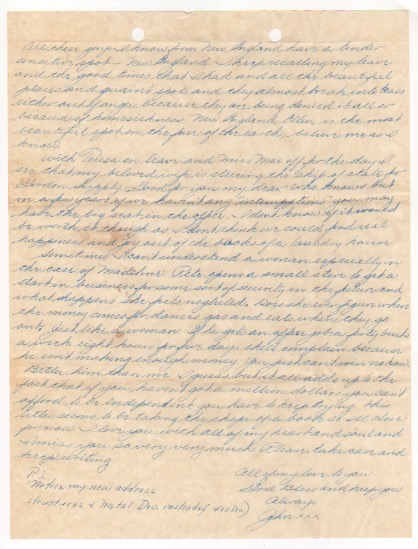 All these guys I know from New England have a tender
sensitive spot - New England. I keep recalling my leave
and the good times that I had and all the beautiful
places and quaint spots and they almost break into tears
either out of anger because they are being denied it all or
because of homesickness. New England, Ellen, is the most
beautiful spot on the face of the earth, believe me as I
know.
With Teresa on leave and Miss Mae off for the day I
see that my beloved wife is steering the ship of state for
Borden Supply. Good for you my dear - who knows but
in a few years if we haven't any "interruptions" you may
have the big seat in the office. I don't know if it would
be worth it though as I don't think we could find real
happiness and joy out of the books of a laundry house
Sometimes I can't understand a woman especially in
the case of Madeline. Pete opens a small store to get a
start in business for some sort of security in the future and
what happens she feels neglected. Does she complain when
the money comes for dances gas and eats when they go
out. Just like a woman. If he gets an offer for a forty bucks
a week eight hours for five days she'll complain because
he isn't making enough money. You just can't win no how.
Better him than me I guess but it all adds up to the
fact that if you haven't got a million dollars you can't
afford to be independent you have to keep trying. This
letter seems to be taking the shape of a book so I'll close
for now. I love you with all of my heart and soul and
I miss you so very very much. Please take care and
keep writing
All of my love to you
God bless and keep you
Always
John xxx
P.S.
Notice my new address
structures & Metal Div. instead of